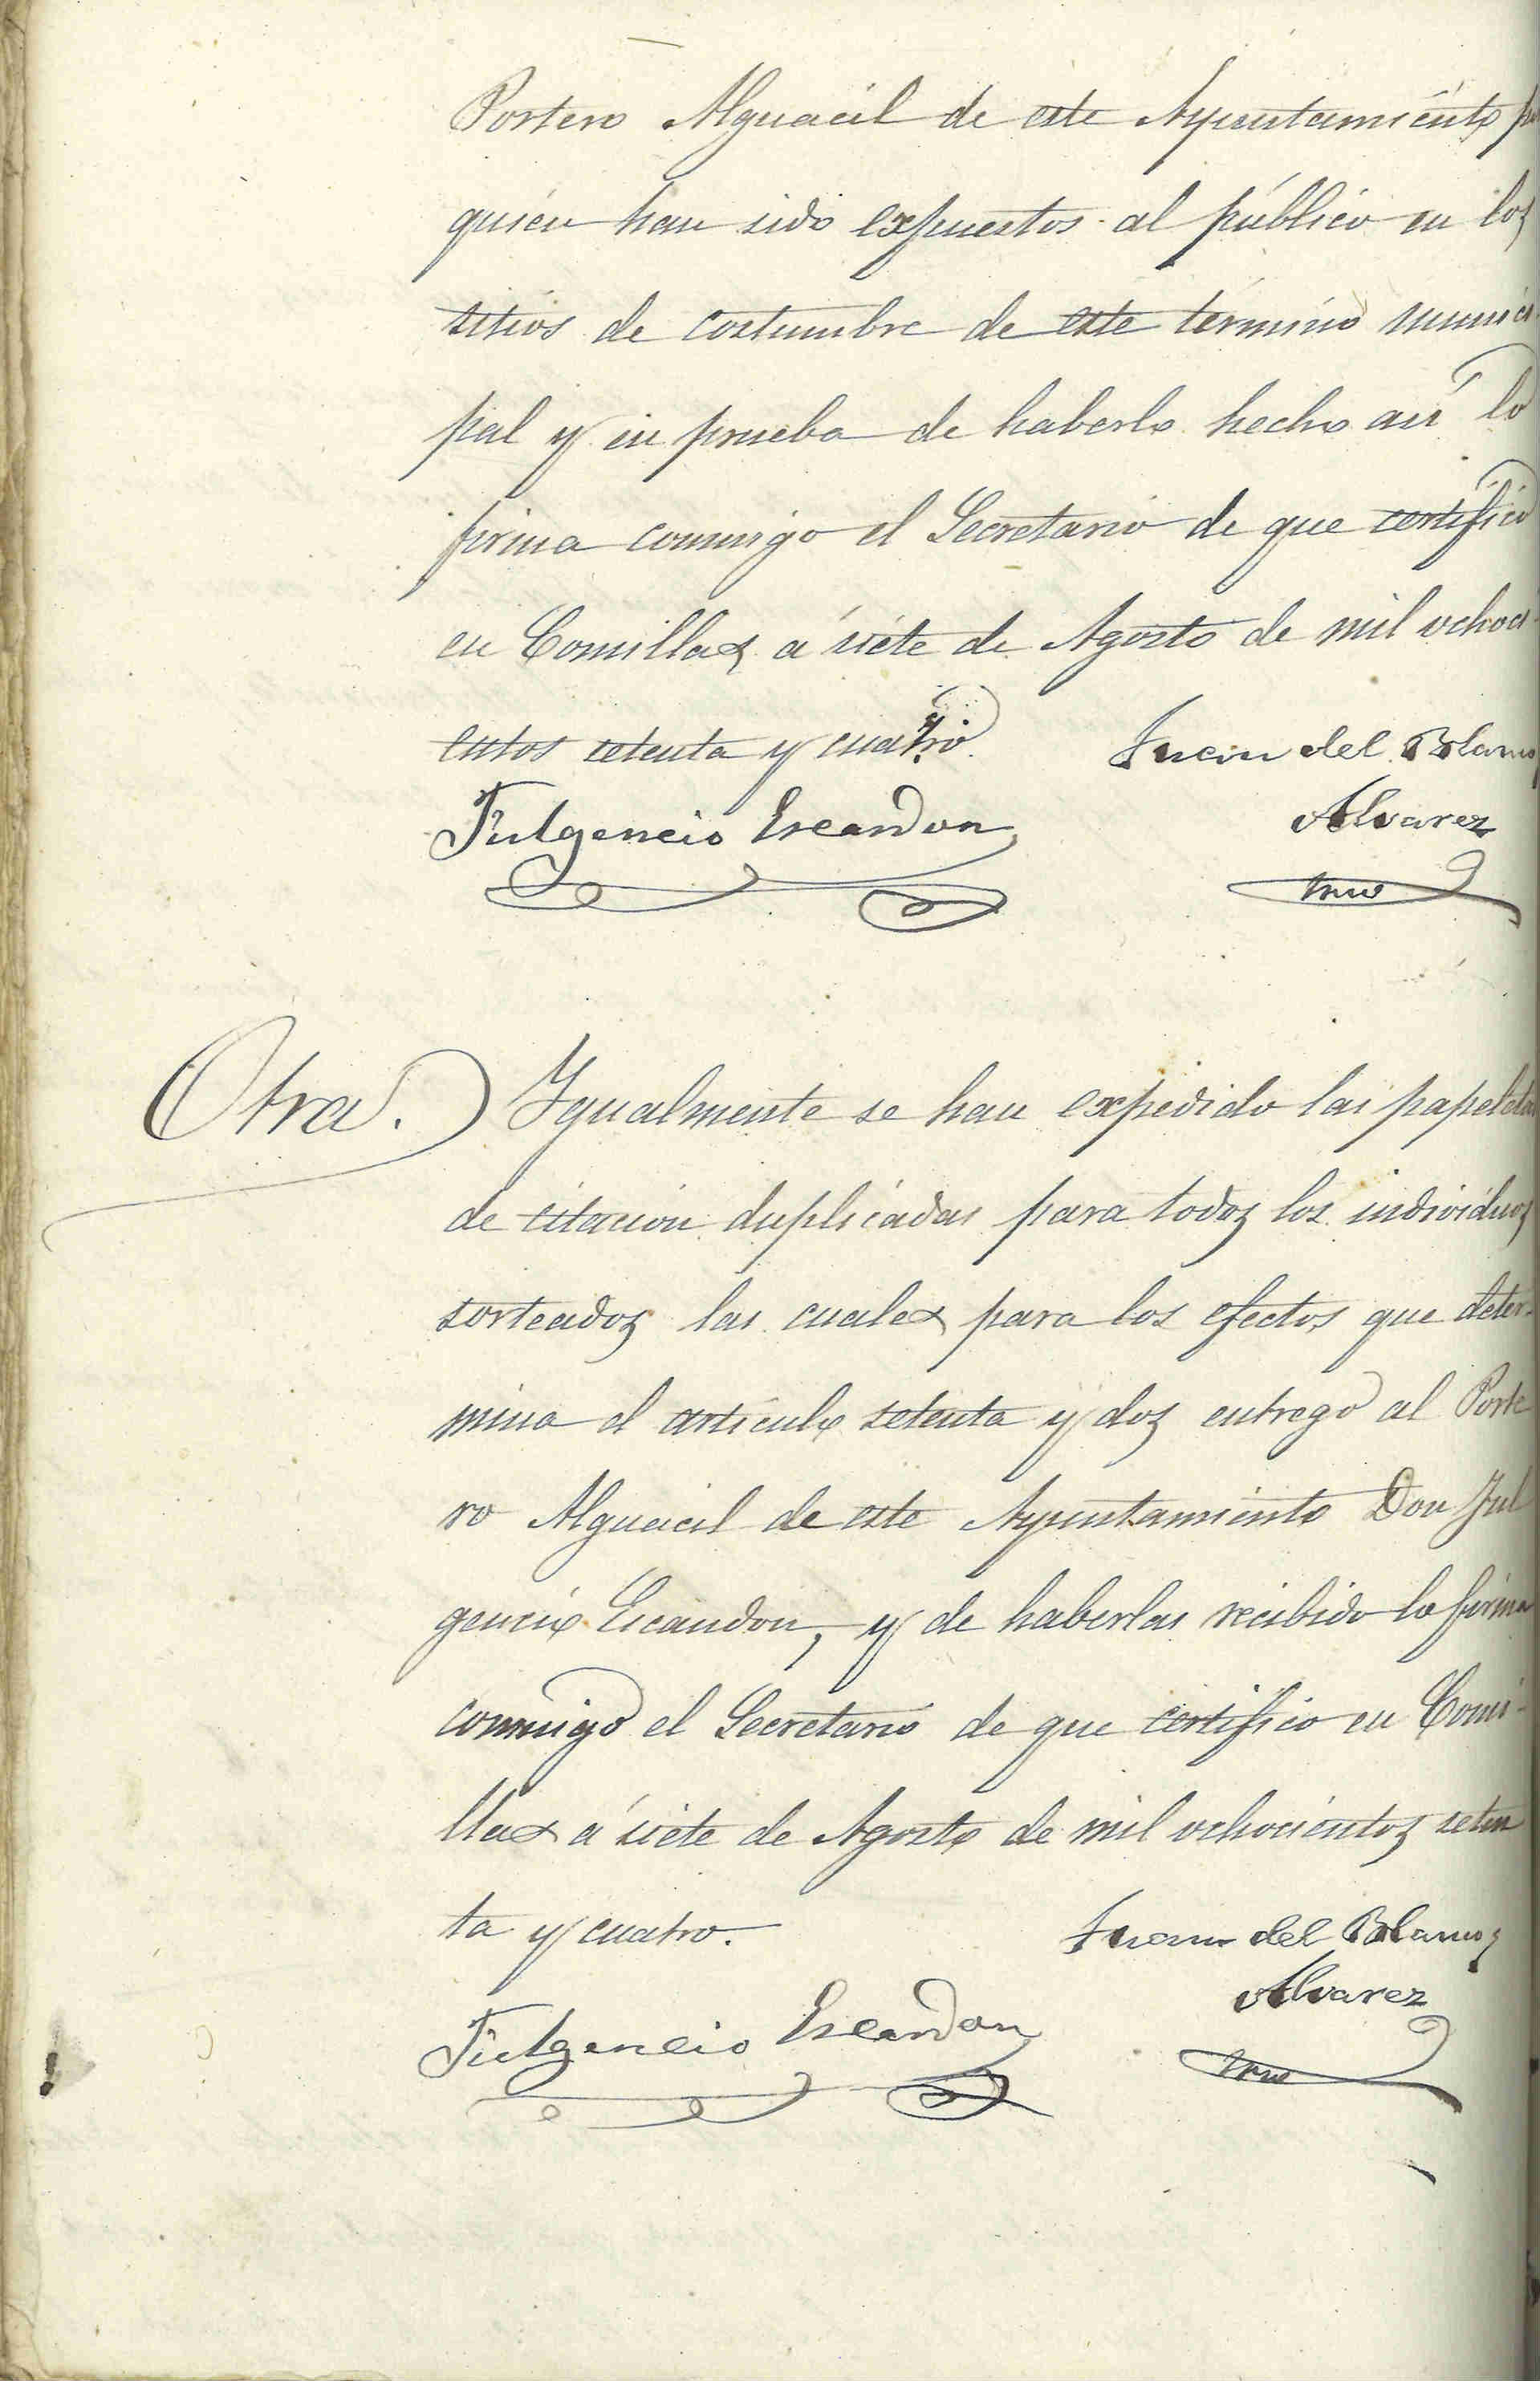 Portero Alguacil de este Ayuntamiento
quién han sido expuestos al público en los
sitios de costumbre de este término munici
pal y en prueba de haberlo hecho así lo
firma conmigo el Secretario de que certifico
en Comillas á siete de Agosto de mil ochoci-
entos setenta y cuatro.
Juan del Blanco
Fulgencio Escandon
Alvarez
Otra. Igualmente se han expedido las papeletas
de citación duplicadas para todos los individuos
sorteados las cuales para los efectos que deter-
mina el artículo setenta y dos entrego al Porte
ro Alguacil de este Ayuntamiento Don Ful
gencio Escandon, y de haberlas recibido lo firma
conmigo el Secretario de que certifico en Comi-
llas á siete de Agosto de mil ochocientos seten
ta y cuatro.
Juan del Blanco
Alvarez
Fulgencio Escandon